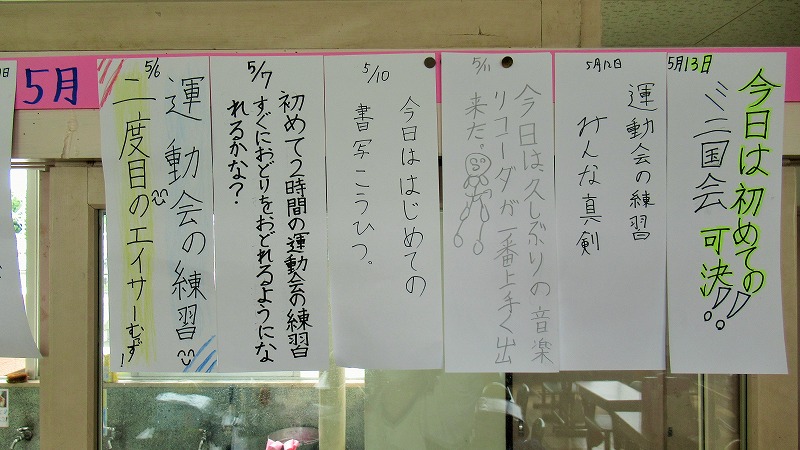 5月
5/6
運動会の練習
二度目のエイサーむずい!
5/7
初めて2時間の運動会の練習
すぐにおどりをおどれるようにな
れるかな?
5/10
今日ははじめての
書写こうひつ。
5/11
今日は久しぶりの音楽
リコーダが一番上手く出
来た。
5月12日
運動会の練習
みんな真剣
5月13日
今日は初めての
ミニ国会 可決!!